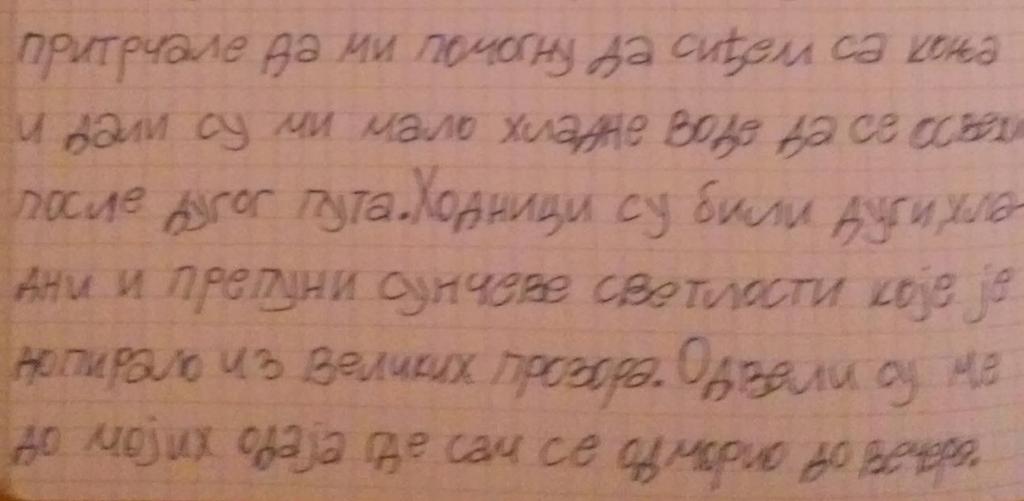 притрчале да ми помогну да сиђем са коња
и дали су ми мало хладне воде да се освежи
после дугог пута. Ходници су били дуги хла-
дни и препуни сунчеве светлости које је
допирало из великих прозора. Одвели су ме
до мојих одаја где сам се одморио до вечера.